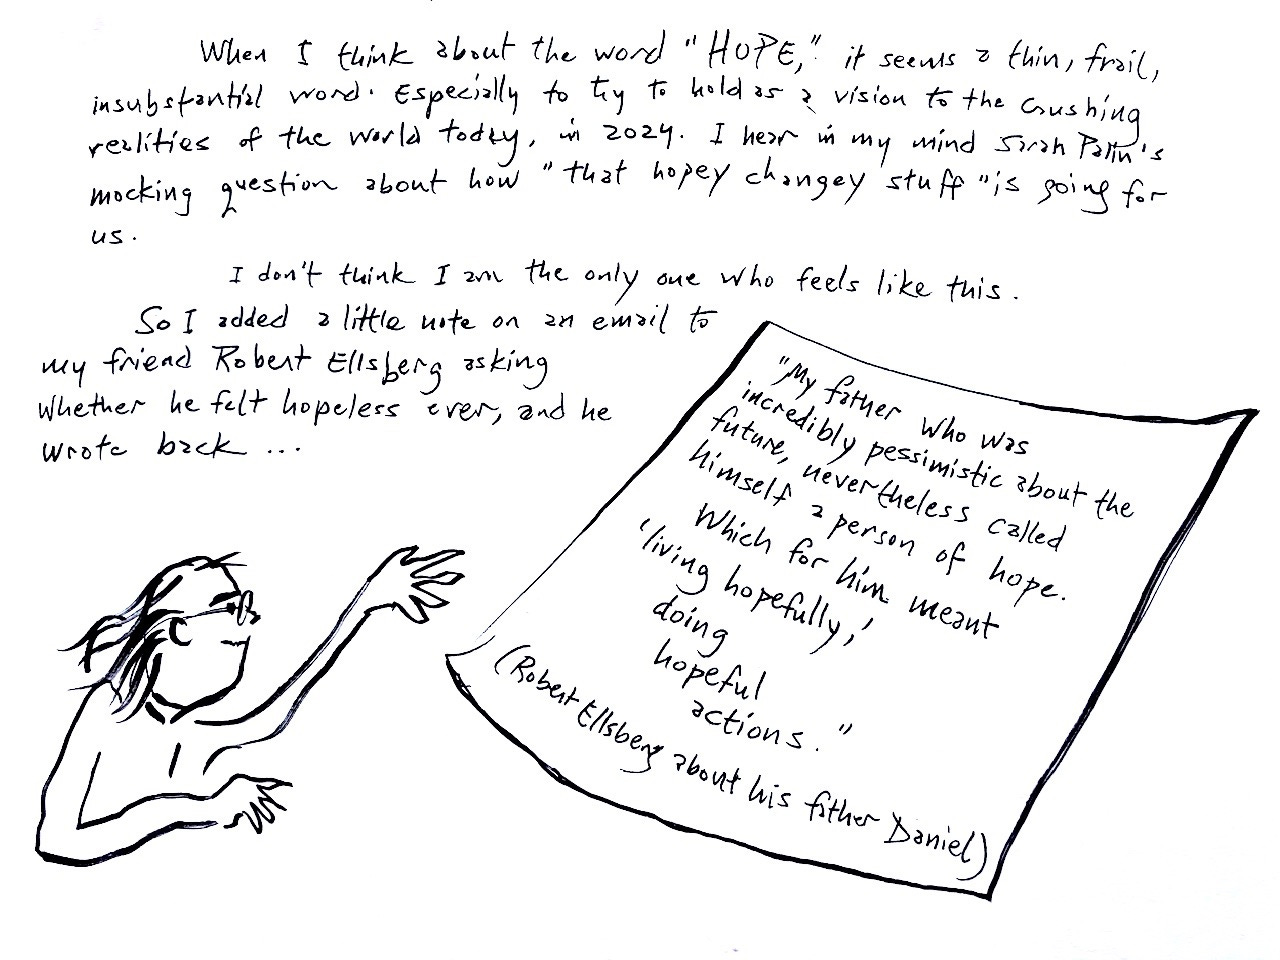 When I think about the word "HOPE," it seems a thin, frail,
insubstantial word. Especially to try to hold as a vision to the crushing
realities of the world today, in 2024. I hear in my mind Sarah Palin's
mocking question about how "that hopey changey stuff" is going for
us.
I don't think I am the only one who feels like this.
So I added a little note on an email to
my friend Robert Ellsberg asking
whether he felt hopeless ever, and he
wrote back ...
"My father who was
incredibly pessimistic about the
future, nevertheless called
himself a person of hope.
Which for him meant
'living hopefully,'
doing
hopeful
actions."
(Robert Ellsberg about his father Daniel)